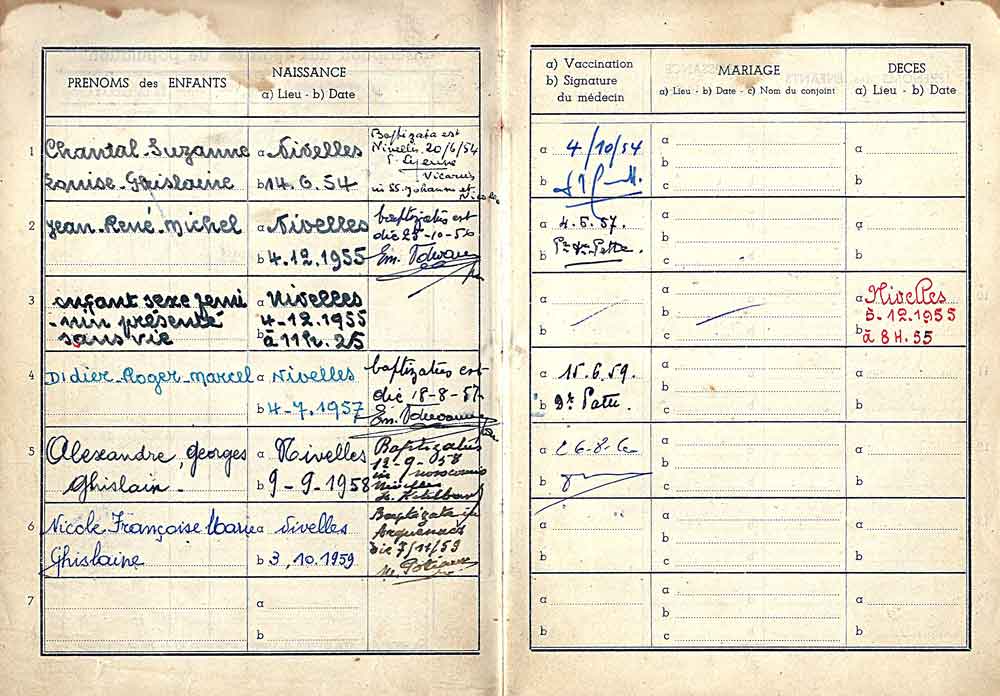 PRENOMS des ENFANTS
NAISSANCE
a) Lieu - b) Date
1
Chantal-Suzanne
Louise-Ghislaine
a Nivelles
b 14.6.54
Baptizata est
Nivelles 20/6/54
Vicarius
in SS. Johannis et
Nicolai
2
Jean-René-Michel
a Nivelles
b 4.12.1955
baptizatus est
die 25-10-56
Em.
3
enfant sexe fémi
-nin présenté
sans vie
a Nivelles
4-12.1955
b à 11h.25
4
Didier-Roger-Marcel
a Nivelles
b 4-7.1957
baptizatus est
die 18-8-57
Em.
5
Alexandre, Georges
Ghislain -
a Nivelles
b 9-9-1958
Baptizatus
12-9-58
in nosocomio
Nivelles
6
Nicole Françoise Marie
Ghislaine
a Nivelles
b 3,10.1959
Baptizata in
Arquennes
die 7/11/59
7
a
b
a) Vaccination
b) Signature
du médecin
MARIAGE
a) Lieu - b) Date - c) Nom du conjoint
DECES
a) Lieu - b) Date
a 4/10/54
b
a
b
c
a
b
a 4.5.57.
b
a
b
c
a
b
a
b
a
b
c
a Nivelles
5-12.1955
b à 8H.55
a 15.6.59.
b Dr
a
b
c
a
b
a
b
a
b
c
a
b
a
b
a
b
c
a
b
a
b
a
b
c
a
b